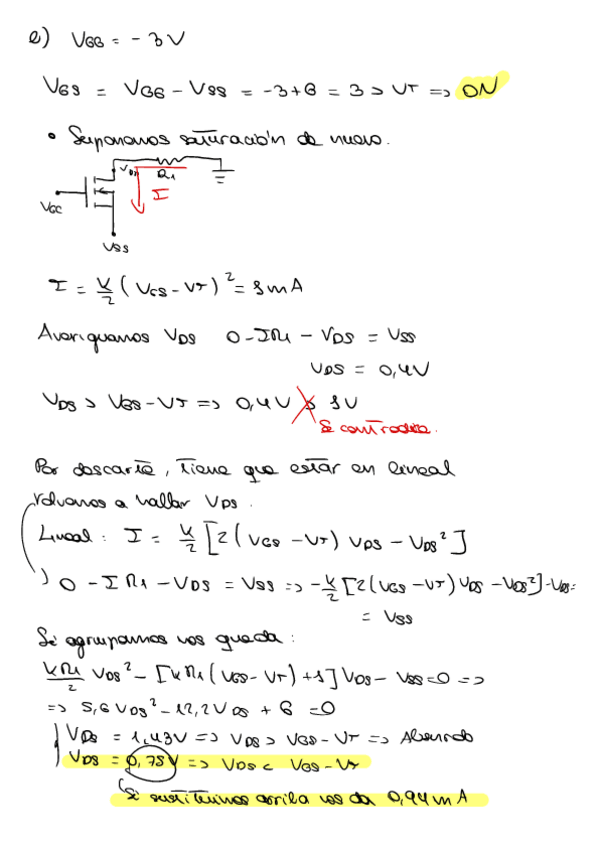 e) VGG = - 3V
VGS = VGG - VSS = -3+6 = 3 > VT => ON
• Suponemos saturación de nuevo.
VDS R1
I
VGG
VSS
I = K/2 (VGS - VT)² = 1mA
Averiguamos VDS 0 - IR1 - VDS = VSS
VDS = 0,4V
VDS > VGS - VT => 0,4V > 1V
Se contradice.
Por descarte, tiene que estar en lineal
volvamos a hallar VDS.
Lineal: I = K/2 [2(VGS - VT) VDS - VDS²]
0 - I R1 - VDS = VSS => -K/2 [2(VGS - VT) VDS - VDS²] - VDS =
= VSS
Si agrupamos nos queda:
KR1/2 VDS² - [KR1(VGS - VT) + 1] VDS - VSS = 0 =>
=> 5,6 VDS² - 12,2 VDS + 6 = 0
VDS = 1,43V => VDS > VGS - VT => Absurdo
VDS = 0,75V => VDS < VGS - VT
Si sustituimos arriba nos da 0,94 mA